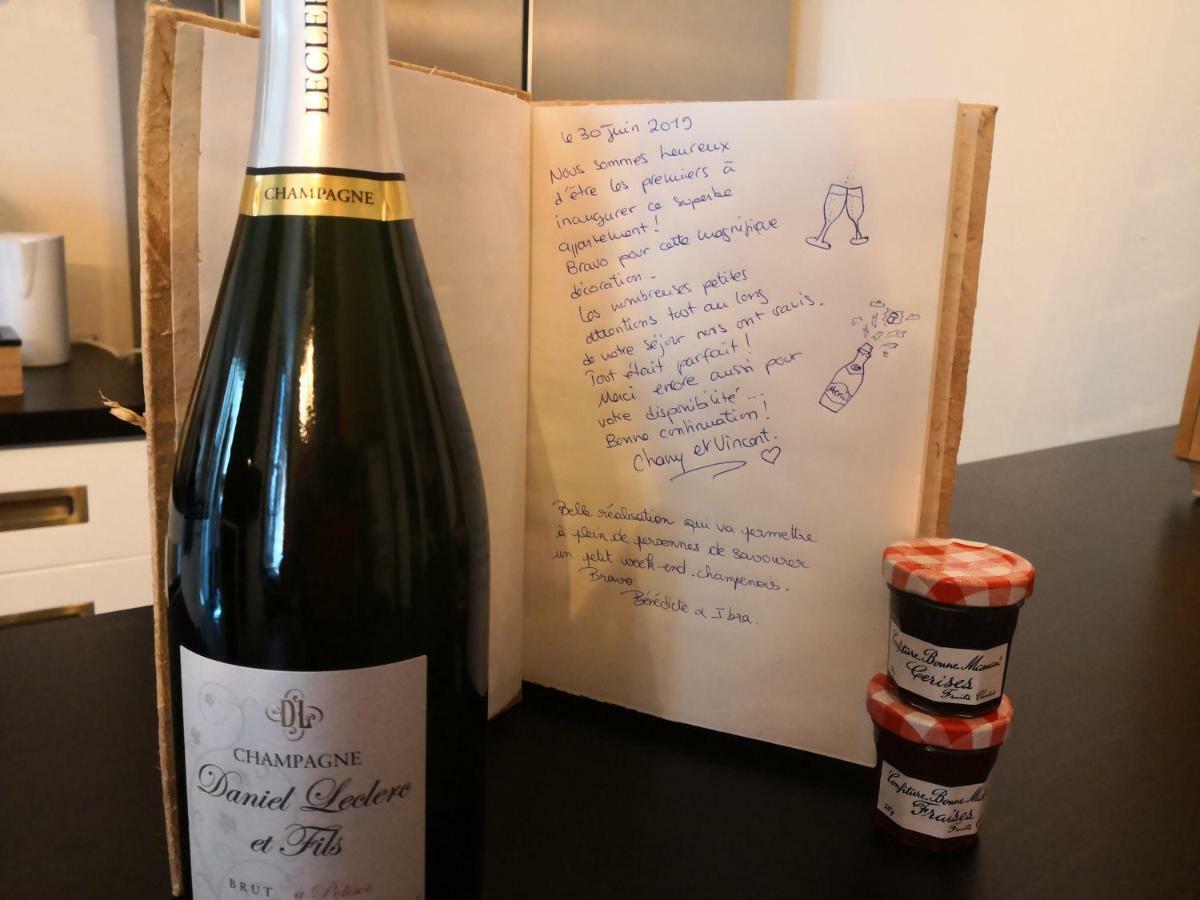 LECLER
CHAMPAGNE
DL
CHAMPAGNE
Daniel Leclerc
et Fils
BRUT à Polisot
le 30 Juin 2019
Nous sommes heureux
d'être les premiers à
inaugurer ce superbe
appartement !
Bravo pour cette magnifique
décoration.
Les nombreuses petites
attentions tout au long
de votre séjour nous ont ravis.
Tout était parfait !
Merci encore aussi pour
votre disponibilité ...
Bonne continuation !
et Vincent.
Merci
Belle réalisation qui va permettre
à plein de personnes de savourer
un petit week-end champenois.
Bravo
Bénédicte & Ibra.
Confiture Bonne Maman
Cerises
Fruits
Confiture Bonne Ma
Fraises
Fruits